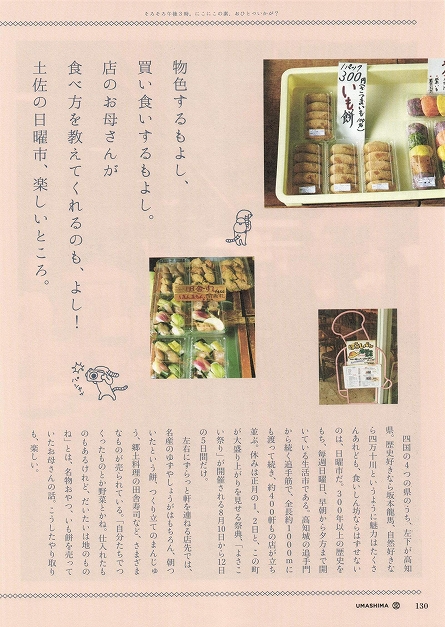 そろそろ午後3時。にこにこの素、おひとついかが?
物色するもよし、
買い食いするもよし。
店のお母さんが
食べ方を教えてくれるのも、よし!
土佐の日曜市、楽しいところ。
1パック
300円
いも餅
田舎すし
四国の4つの県のうち、左下が高知
県。歴史好きなら坂本龍馬、自然好きな
ら四万十川というように魅力はたくさ
んあれども、食いしん坊ならはずせない
のは、日曜市だ。300年以上の歴史を
もち、毎週日曜日、早朝から夕方まで開
いている生活市である。高知城の追手門
から続く追手筋で、全長約1000mに
も渡って続き、約400軒もの店が立ち
並ぶ。休みは正月の1、2日と、この町
が大盛り上がりを見せる祭典、「よさこ
い祭り」が開催される8月10日から12日
の5日間だけ。
左右にずらっと軒を連ねる店先では、
名産のゆずやしょうがはもちろん、朝つ
いたという餅、つくり立てのまんじゅ
う、郷土料理の田舎寿司など、さまざま
なものが売られている。「自分たちでつ
くったものとか野菜とかね。仕入れたも
のもあるけれど、だいたいは地のもの
ね」とは、名物おやつ、いも餅を売って
いたお母さんの話。こうしたやり取り
も、楽しい。
UMASHIMA
130